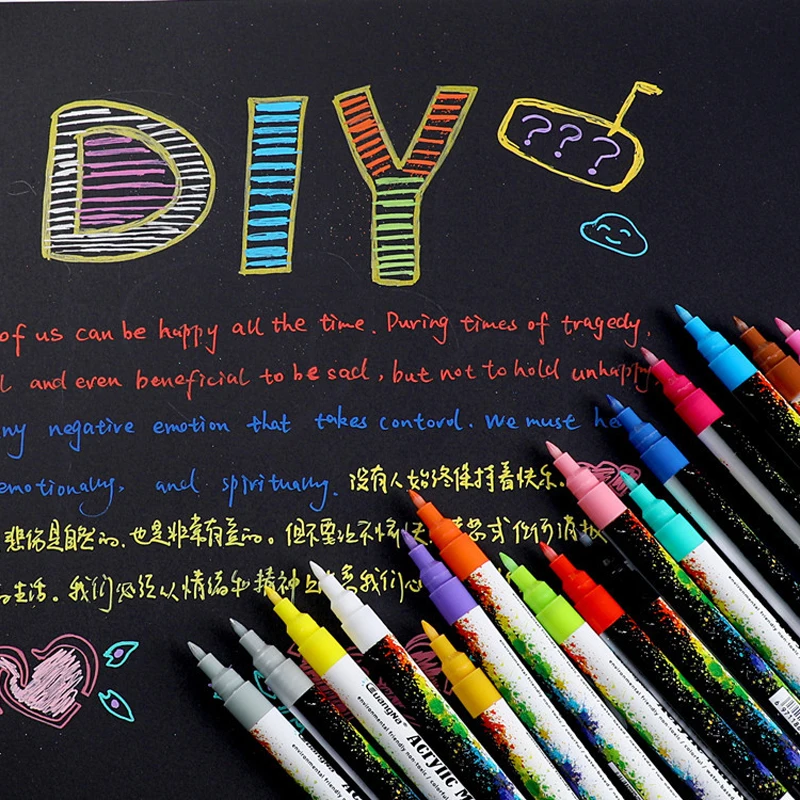 DIY
? ? ?
of us can be happy all the time. During times of tragedy,
and even beneficial to be sad, but not to hold unhappy
negative emotion that takes contorol. We must
emotionally, and spiritually. 没有人始终保持着快乐。
悲伤是自然的,也是非常有益的。但不要让不
生活。我们必须从情绪和精神上
GuangNa
environmental friendly non-toxic / colorful
Acrylic